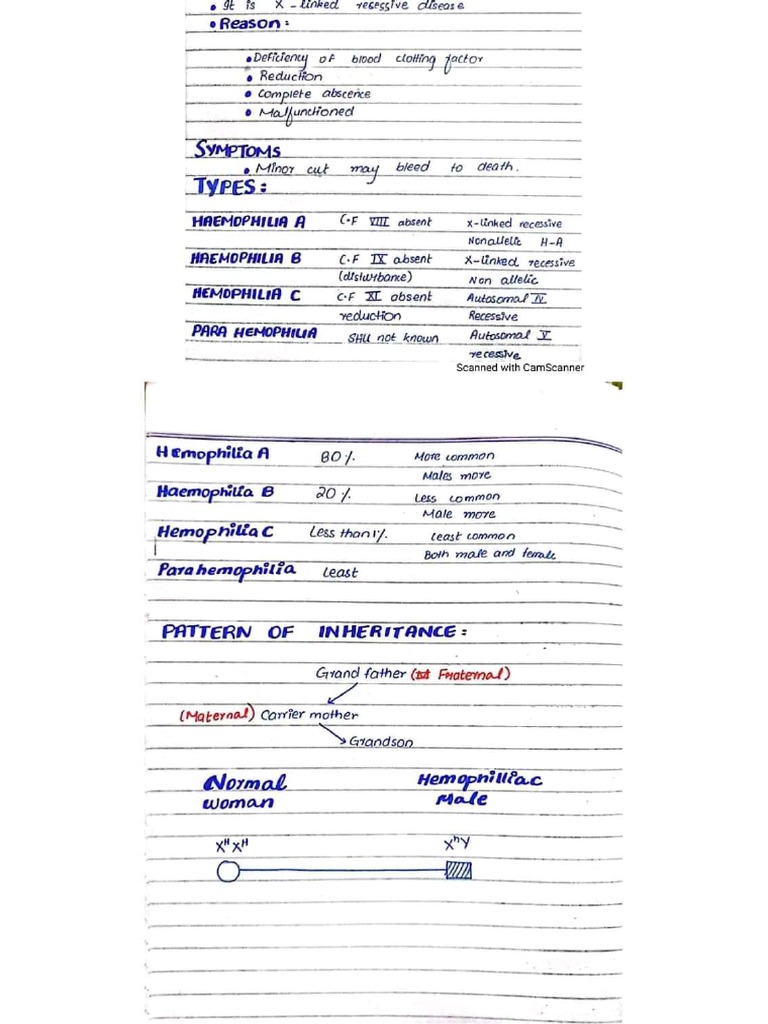 • It is X-linked recessive disease
• Reason:
• Deficiency of blood clotting factor
• Reduction
• Complete abscence
• Malfunctioned
SYMPTOMS
• Minor cut may bleed to death.
TYPES:
HAEMOPHILIA A C.F VIII absent X-linked recessive
Nonallelic H-A
HAEMOPHILIA B C.F IX absent X-linked recessive
(disturbance) Non allelic
HEMOPHILIA C C.F XI absent Autosomal IV
reduction Recessive
PARA HEMOPHILIA SHU not known Autosomal V
recessive
Scanned with CamScanner
Hemophilia A 80% More common
Males more
Haemophilia B 20% Less common
Male more
Hemophilia C Less than 1% least common
Both male and female
Parahemophilia least
PATTERN OF INHERITANCE:
Grand father (Fraternal)
(Maternal) Carrier mother
Grandson
Normal Hemophilliac
woman Male
XᴴXᴴ XʰY